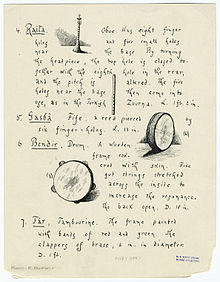 4. Raita    Oboe has eight finger
holes and five small holes
near the base By turning
the headpiece, the top hole is closed to-
gether with the eighth hole in the rear,
and the pitch is altered five holes
near the base then come into
use, as in the Turkish Zourna. L. 1ft. 2 in.
5. Gasbâ    Fife, a reed pierced by
six finger-holes. L. in.
6. Bendir, Drum. A wooden
frame cov-
ered with skin. Five
gut strings stretched
across the inside to
increase the resonance,
the back open. D. in
7. Tàr, Tambourine. The frame painted
with bands of red and green the
clappers of brass, 2 in. in diameter.
D. 1ft.